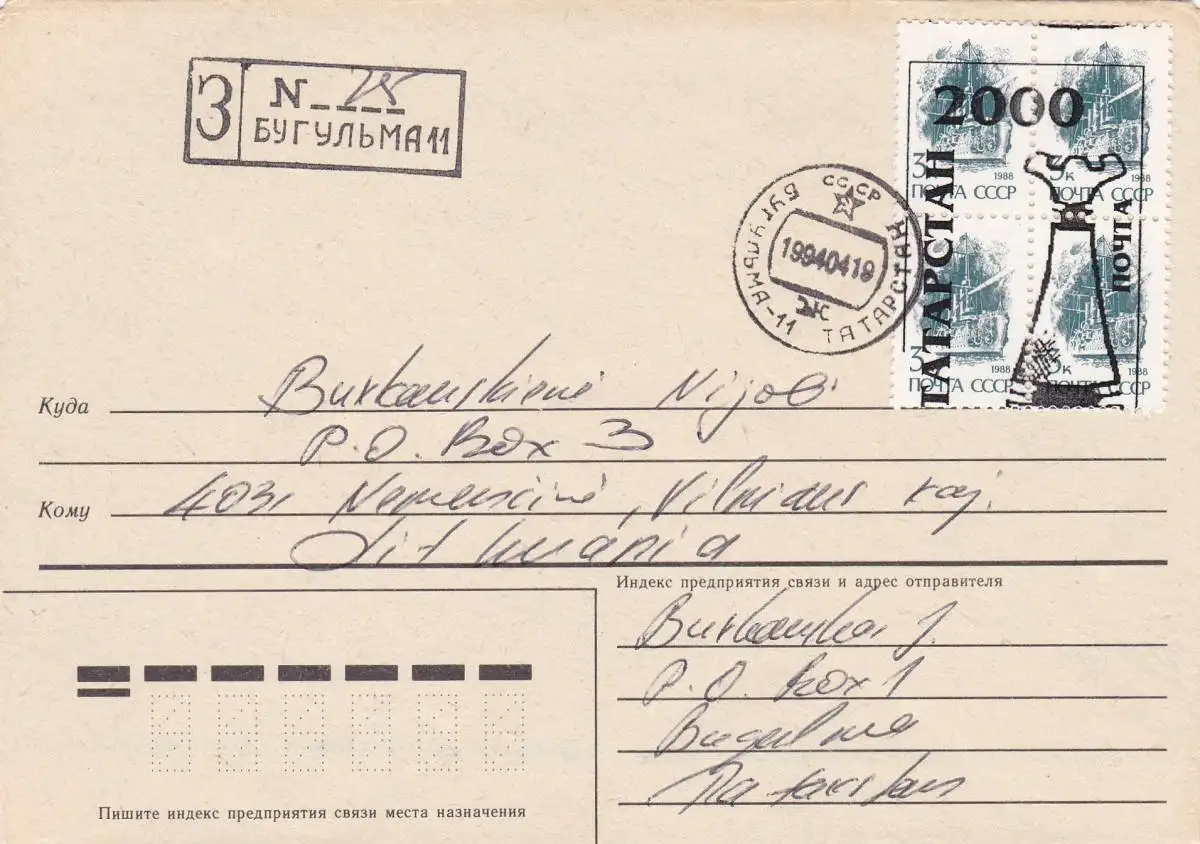 З
N 25
БУГУЛЬМА 11
СССР
БУГУЛЬМА-11 ТАТАРСТАН
19940419
ЭЖ
2000
ТАТАРСТАН
ПОЧТА
3к 1988
ПОЧТА СССР
3к 1988
ПОЧТА СССР
3к 1988
ПОЧТА СССР
3к 1988
ПОЧТА СССР
Куда Burkauskienė Nijolė
P.O. Box 3
Кому 4031 Nemenčinė, Vilniaus raj.
Lithuania
Индекс предприятия связи и адрес отправителя
Burkauskas J.
P.O. Box 1
Bugulma
Tatarstan
Пишите индекс предприятия связи места назначения